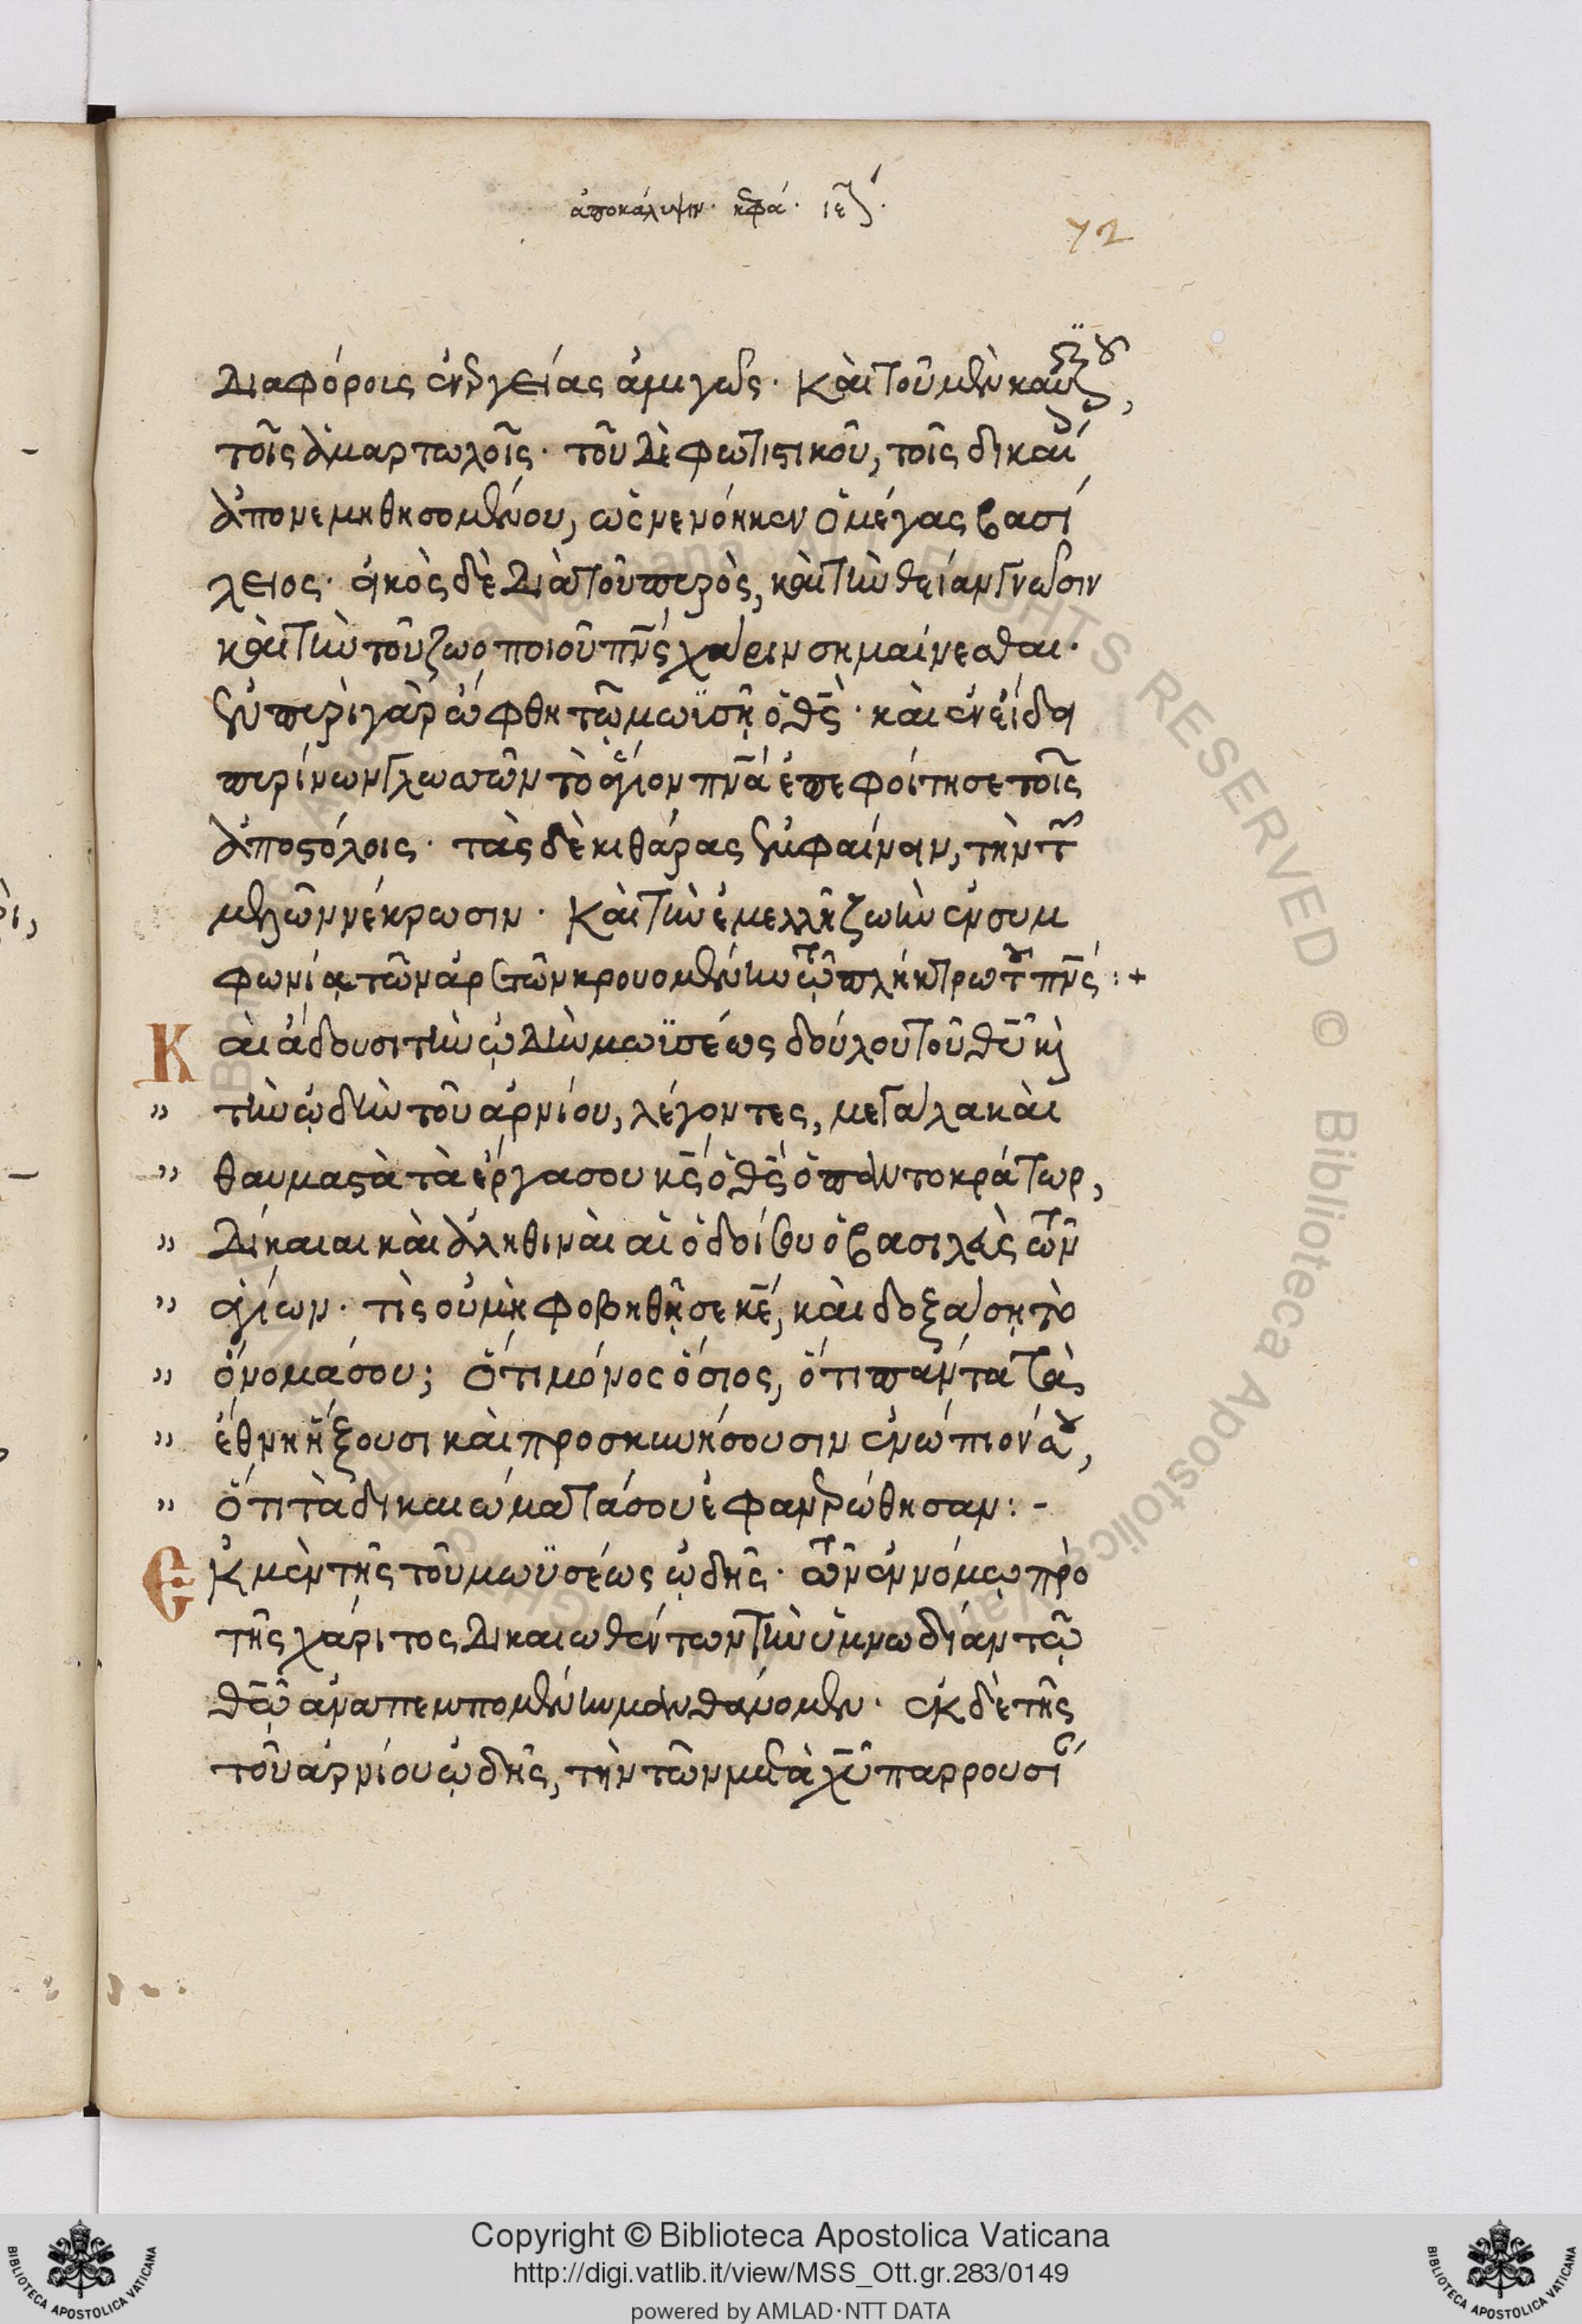 ἀποκάλυψιν· κεφά· ιε·
72
διαφόροις ἐνεργείας ἀμιγῶς· καὶ τοῦ μὲν καυστικοῦ,
τοῖς ἁμαρτωλοῖς· τοῦ δὲ φωτιστικοῦ, τοῖς δικαί
ἀπονεμηθησομένου, ὡς νενόηκεν ὁ μέγας βασί
λειος· εἰκὸς δὲ διὰ τοῦ πυρὸς, καὶ τὴν θείαν γνῶσιν
καὶ τὴν τοῦ ζωοποιοῦ πνς χάριν σημαίνεσθαι·
ἐν πυρὶ γὰρ ὤφθη τῷ μωϊσῇ ὁ θς· καὶ ἐν εἴδει
πυρίνων γλωσσῶν τὸ ἅγιον πνα ἐπεφοίτησε τοῖς
ἀποστόλοις· τὰς δὲ κιθάρας ἐμφαίνειν, τὴν τ
μελῶν νέκρωσιν· καὶ τὴν ἐμμελῆ ζωὴν ἐν συμ
φωνίᾳ τῶν ἀρετῶν κρουομένην τῷ πλήκτρῳ τοῦ πνς:+
Καὶ ᾄδουσι τὴν ᾠδὴν μωϊσέως δούλου τοῦ θυ καὶ
" τὴν ᾠδὴν τοῦ ἀρνίου, λέγοντες, μεγάλα καὶ
" θαυμαστὰ τὰ ἔργα σου κε ὁ θς ὁ παντοκράτωρ,
" δίκαιαι καὶ ἀληθιναὶ αἱ ὁδοί σου ὁ βασιλεὺς τῶν
" ἁγίων· τίς οὐ μὴ φοβηθῇ σε κε, καὶ δοξάσῃ τὸ
" ὄνομά σου; ὅτι μόνος ὅσιος, ὅτι πάντα τὰ
" ἔθνη ἥξουσι καὶ προσκυνήσουσιν ἐνώπιόν σου,
" ὅτι τὰ δικαιώματά σου ἐφανερώθησαν:-
Ἐκ μὲν τῆς τοῦ μωϋσέως ᾠδῆς· τῶν ἐν νόμῳ πρὸ
τῆς χάριτος δικαιωθέντων τὴν ὑμνωδίαν τῷ
θῷ ἀναπεμπομένην μανθάνομεν· ἐκ δὲ τῆς
τοῦ ἀρνίου ᾠδῆς, τὴν τῶν μετὰ χυ παρρουσί
Copyright © Biblioteca Apostolica Vaticana
http://digi.vatlib.it/view/MSS_Ott.gr.283/0149
powered by AMLAD·NTT DATA